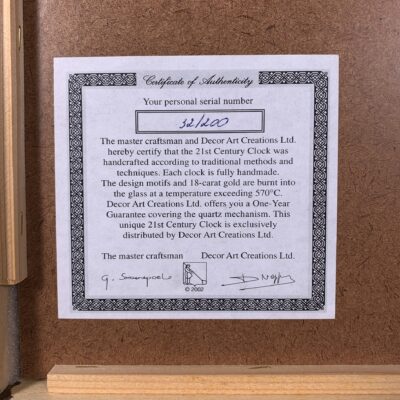 Certificate of Authenticity
Your personal serial number
32/200
The master craftsman and Decor Art Creations Ltd.
hereby certify that the 21st Century Clock was
handcrafted according to traditional methods and
techniques. Each clock is fully handmade.
The design motifs and 18-carat gold are burnt into
the glass at a temperature exceeding 570°C.
Decor Art Creations Ltd. offers you a One-Year
Guarantee covering the quartz mechanism. This
unique 21st Century Clock is exclusively
distributed by Decor Art Creations Ltd.
The master craftsman Decor Art Creations Ltd.
© 2002